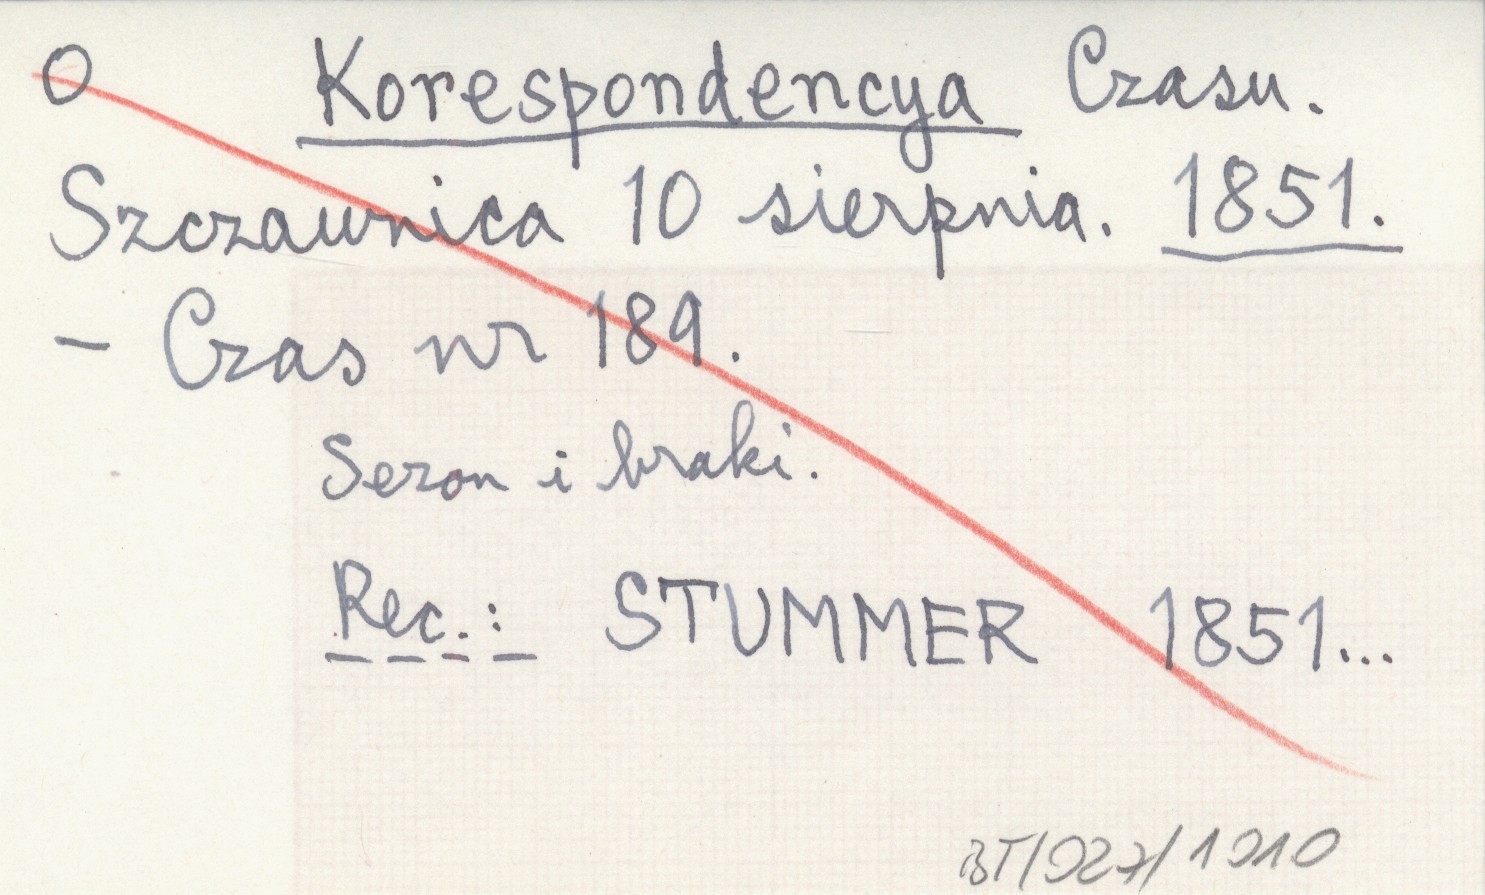 O Korespondencya Czasu.
Szczawnica 10 sierpnia. 1851.
- Czas nr 189.
Sezon i braki.
Rec.: STUMMER 1851...
BT/927/1910